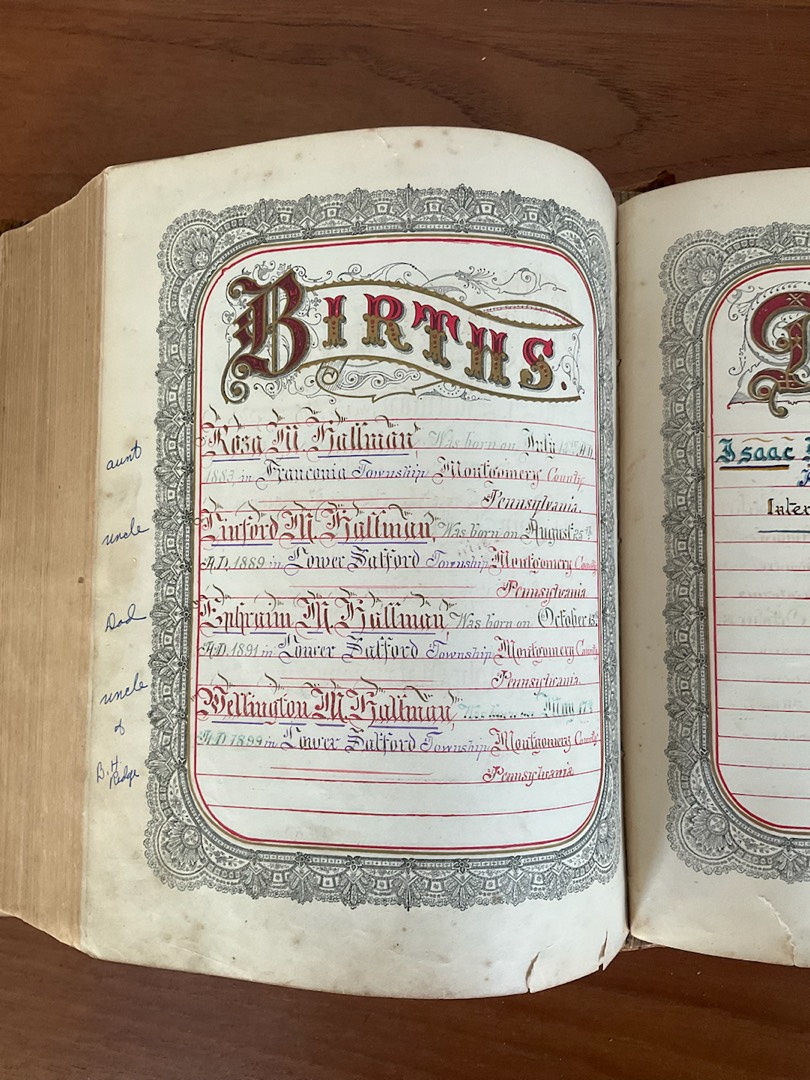 BIRTHS.
aunt
Rosa M. Hallman, Was born on July A.D.
1883 in Franconia Township Montgomery County
Pennsylvania.
uncle
Linford M. Hallman, Was born on August 25th
A.D. 1889 in Lower Salford Township Montgomery County
Pennsylvania.
Dad
Ephraim M. Hallman, Was born on October
A.D. 1891 in Lower Salford Township Montgomery County
Pennsylvania.
uncle
of
Wellington M. Hallman, Was born on May
A.D. 1899 in Lower Salford Township Montgomery County
B. H. Hedge
Pennsylvania.
Isaac
Inter